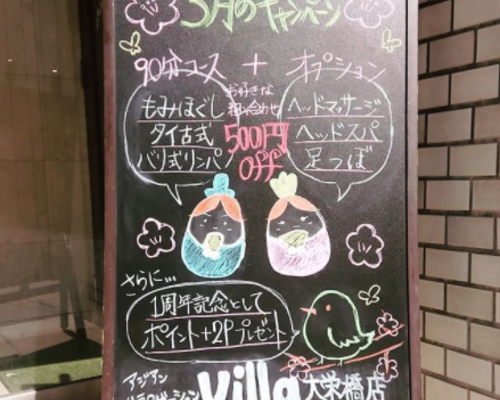 3月のキャンペーン
90分コース + オプション
お好きな
組み合わせ
もみほぐし
タイ古式
バリ式リンパ
500円
OFF
ヘッドマッサージ
ヘッドスパ
足つぼ
さらに…
1周年記念として
ポイント+2Pプレゼント
アジアン
リラクゼーション
Villa 大栄橋店